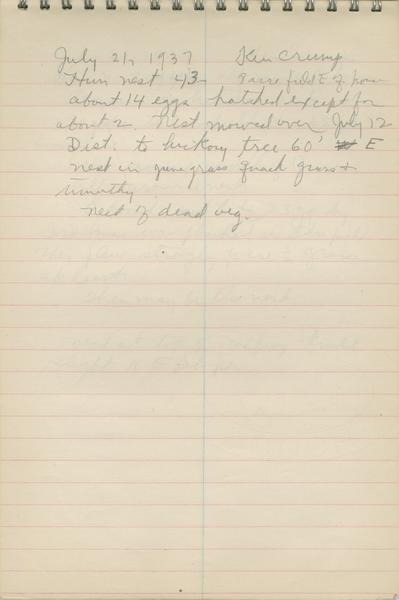 July 21, 1937 Ken Crump
Hun nest 43 5 acre field E of house
about 14 eggs hatched except for
about 2. Nest mowed over July 12
Dist. to hickory tree 60' E
nest in june grass quack grass +
timothy
nest of dead veg.